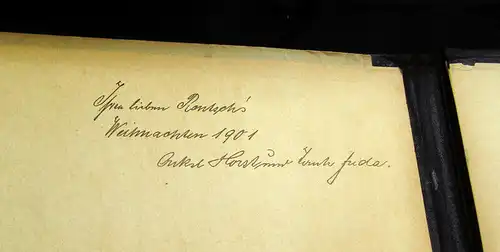 Ihren lieben Rentsch's
Weihnachten 1901
Onkel Horst und Tante Frida.